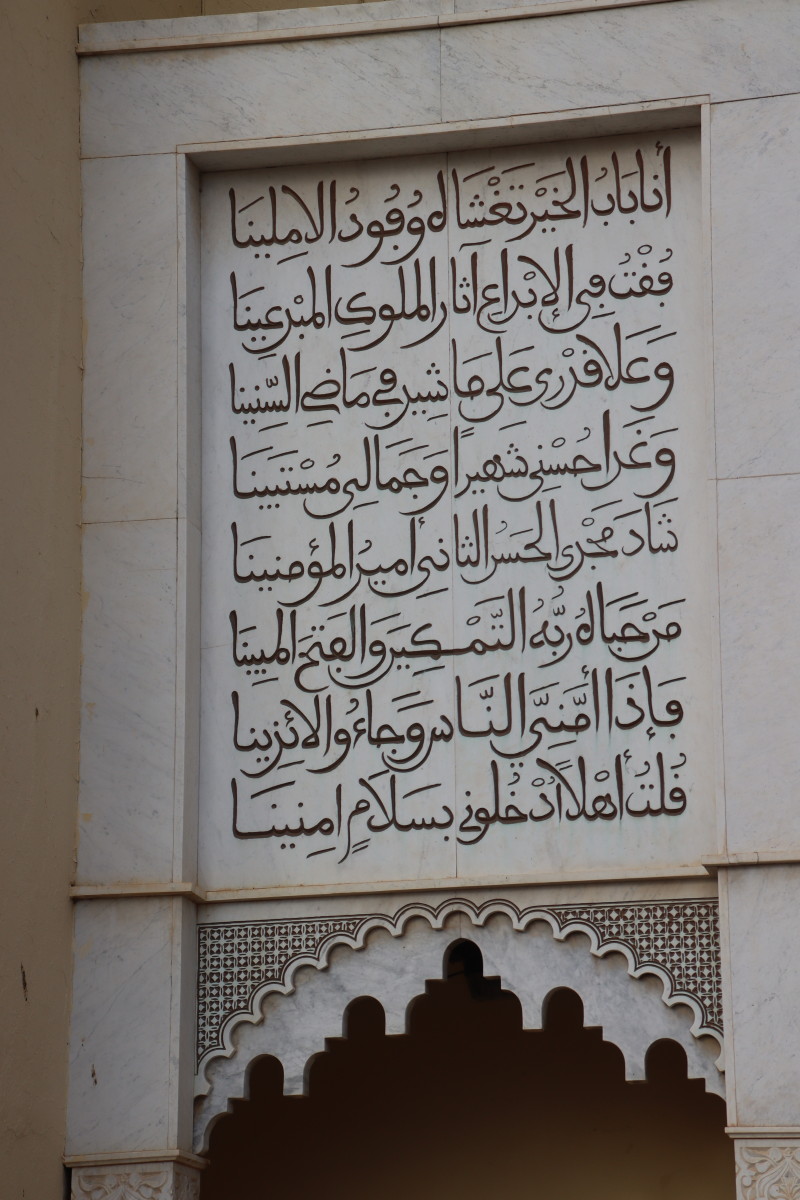 أنا بَابُ الخَيْرِ تَغْشَاهُ وُفُودُ الامِلِينَا
فُقْتُ فِي الإبْدَاعِ آثَارَ الملُوكِ المبْدِعِينَا
وَعَلَا قَدْرِى عَلَى مَا شِيدَ فِي مَاضِي السِّنِينَا
وَغَدَا حُسْنِي شَهِيراً وَجَمَالِي مُسْتَبِينَا
شَادَ مَجْدِي الحَسَنُ الثَّانِي أمِيرُ المؤمِنِينَا
مَرْحَبًا لهُ رَبُّهُ التَّمْكِينَ وَالفَتْحَ المبِينَا
فَإذَا أمَّنِيَ النَّاسُ وَجَاءُوا لائِذِينَا
قُلتُ أهْلاً اُدْخُلُونِي بِسَلَامٍ امِنِينَا